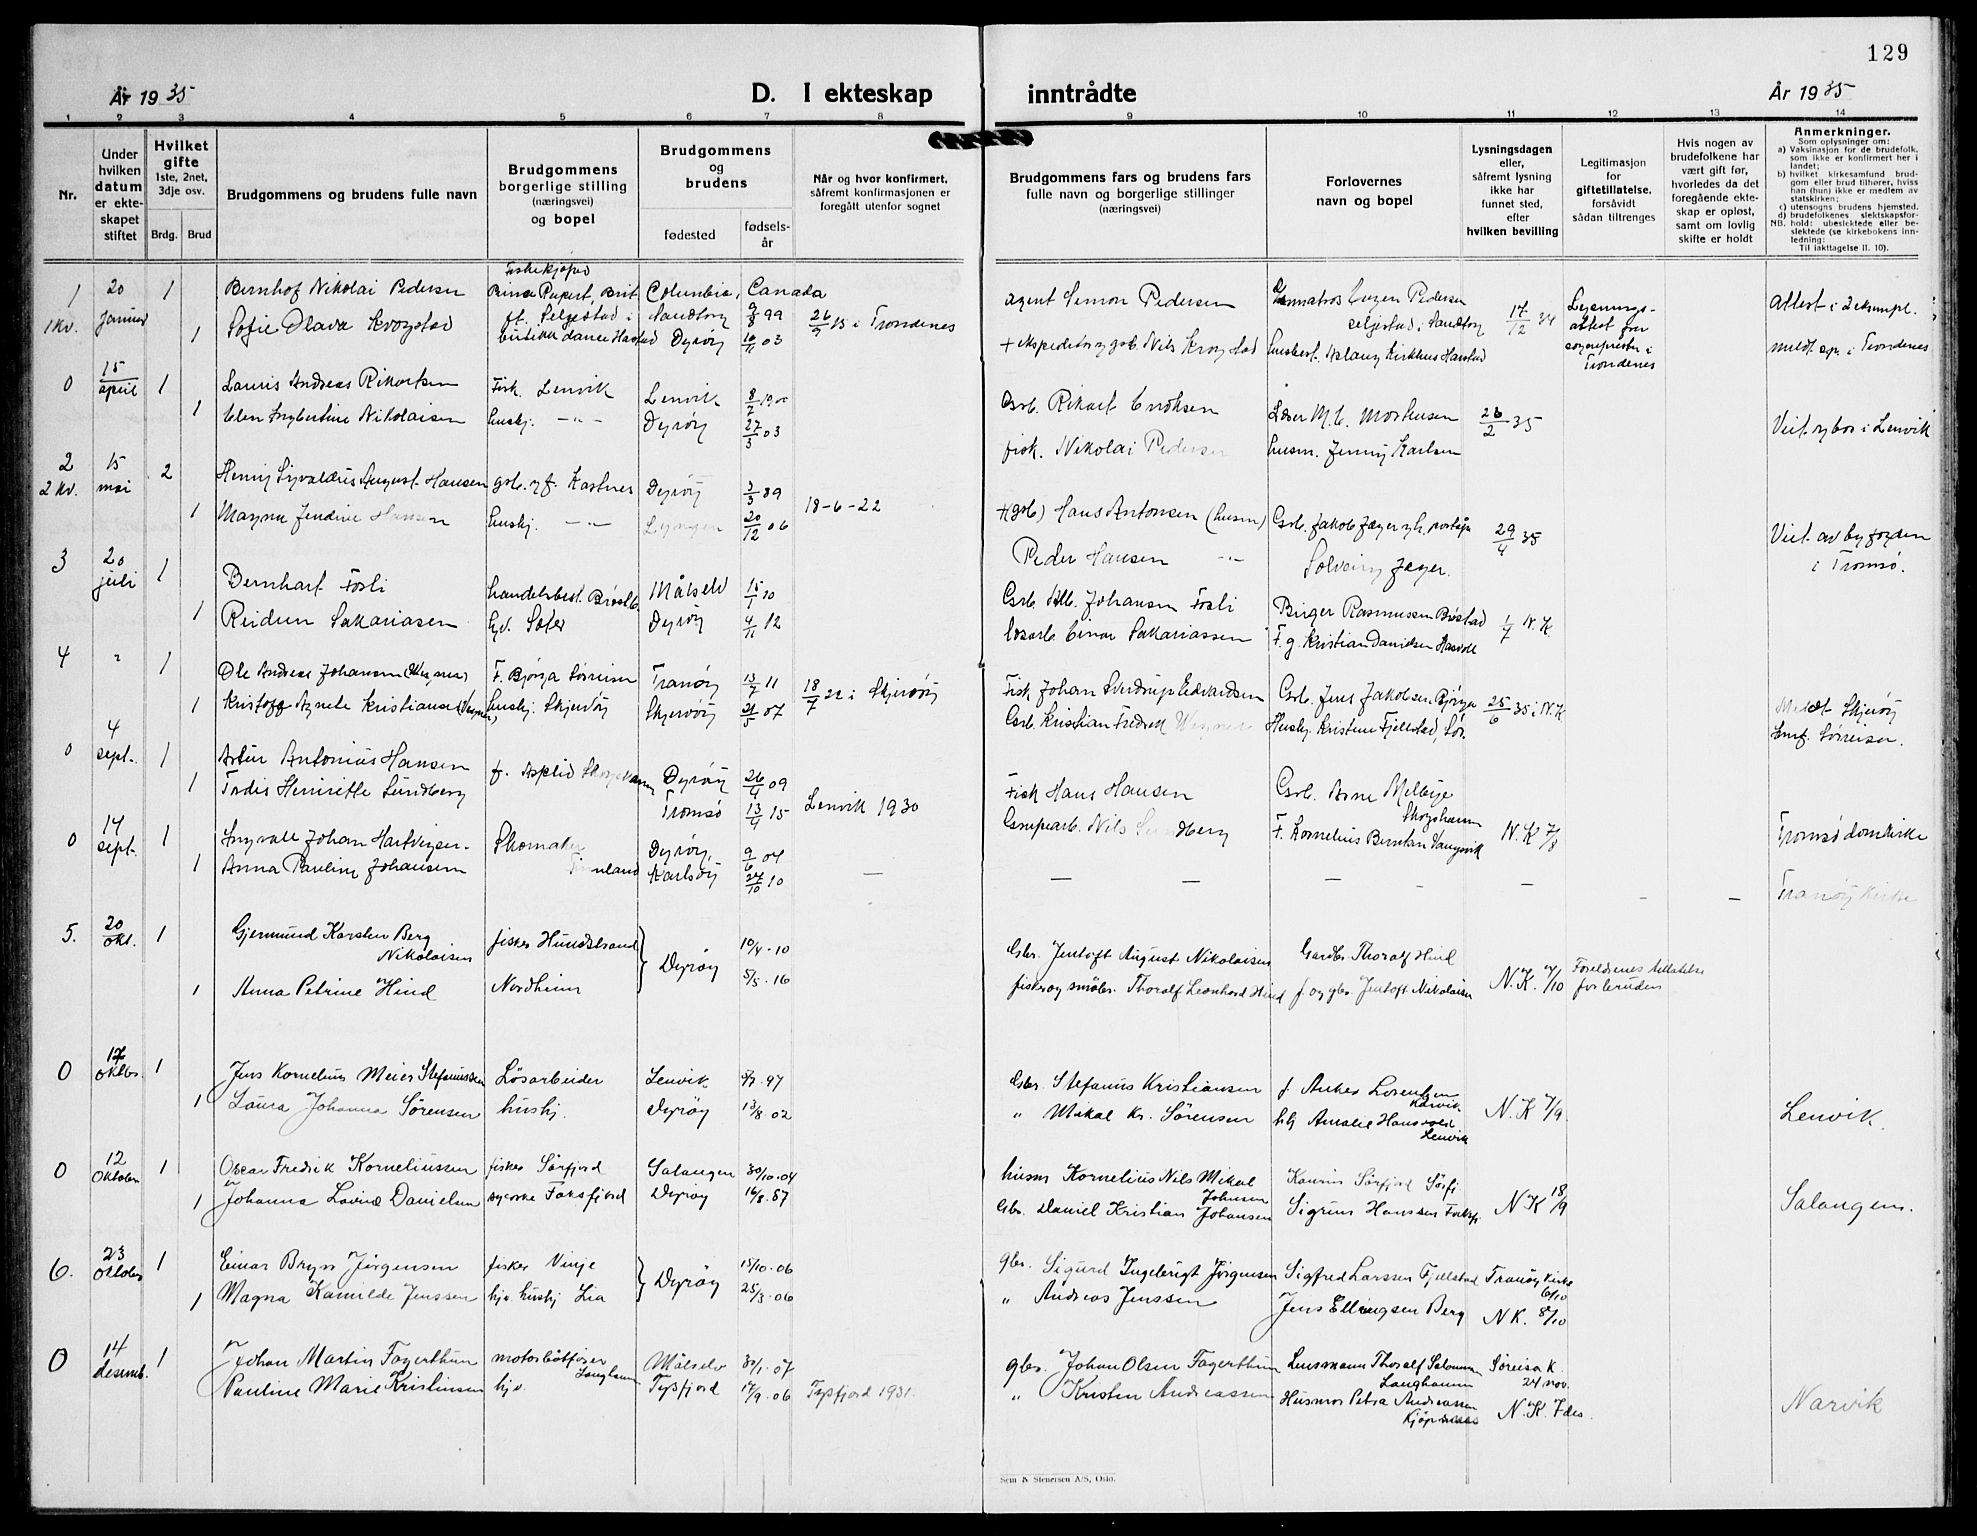 129
År 1935
D. I ekteskap inntrådte
År 1935
1 2 3 4 5 6 7 8 9 10 11 12 13 14
Nr.
Under hvilken datum er ekteskapet stiftet
Hvilket gifte 1ste, 2net, 3dje osv.
Brdg. Brud
Brudgommens og brudens fulle navn
Brudgommens borgerlige stilling (næringsvei) og bopel
Brudgommens og brudens
fødested
fødselsår
Når og hvor konfirmert, såfremt konfirmasjonen er foregått utenfor sognet
Brudgommens fars og brudens fars fulle navn og borgerlige stillinger (næringsvei)
Forlovernes navn og bopel
Lysningsdagen eller, såfremt lysning ikke har funnet sted, efter hvilken bevilling
Legitimasjon for giftetillatelse, forsåvidt sådan tiltrenges
Hvis nogen av brudefolkene har vært gift før, hvorledes da det foregående ekteskap er opløst, samt om lovlig skifte er holdt
Anmerkninger.
Som oplysninger om:
a) Vaksinasjon for de brudefolk, som ikke er konfirmert her i landet;
b) hvilket kirkesamfund brudgom eller brud tilhører, hviss han (hun) ikke er medlem av statskirken;
c) utensogns brudens hjemsted.
d) brudefolkenes slektskapsforhold: ubeslektede eller beslektede (se kirkebokens innledning:
NB. Til iakttagelse II. 10).
1 20 januar 1 Bernhof Nikolai Pedersen Fiskekjøper Prince Rupert, Brit. Columbia, Canada Sandtorg 9/8 99 agent Simon Pedersen Pedersen Seljestad i Sandtorg 17/12 34 Lysningsattest fra sogneprest i Trondenes Attest i 2 eksempl.
1 kv. 1 Sofie Olava Krogstad Harstad Dyrøy 16/11 03 26/9 15 i Trondenes Nils Krogstad Kirkhus Harstad meldt spr. i Trondenes
0 15 april 1 Lauris Andreas Rikartsen Fisk. Lenvik Lenvik 8/7 1900 Gsb. Rikart Enoksen Læser M. E. Mortensen 26/2 35 Viet. sybos i Lenvik
1 Elen Ingbertine Nikolaisen hushj. -"- Dyrøy 27/3 03 fisk. Nikolai Pedersen husm. Jenny Karlsen
2 15 mai 2 Henry Sigvaldus August Hansen gsb. og f. Kastnes Dyrøy 3/3 89 +(gsb) Hans Antonsen (husm) Gsb. Jakob Jæger 29/4 35 Viet av byfogden i Tromsø.
2 kv. 1 Magna Jendine Hansen hushj. -"- Lyngen 20/12 06 18-6-22 Peder Hansen -"- Solveig Jæger.
3 20 juli 1 Bernhart Fosli handelsbest. Brøstb. Målselv 15/1 10 Gsb. Johansen Fosli Birger Rasmussen Brøstad 1/7 N. K.
1 Reidun Sakariasen hj. Solfer Dyrøy 4/11 12 løsarb. Einar Sakariassen F. g. Kristian Danielsen
4 " 1 Ole Andreas Johansen (Wegner) F. Bjørga Sørreisa Tranøy 13/7 11 Fisk Johan Sverdrup Edvardsen Gsb. Jens Jakobsen Bjørga 25/6 35 i N.K. Meldt Skjervøy
1 Kristoffa Agnete Kristiansen (Wegner) hushj. Skjervøy Skjervøy 21/5 07 18/7 22 i Skjervøy Gsb. Kristian Fredrik Wegner Hushj. Kristine Fjellstad, Sør. Sørreisa.
0 4 sept. 1 Artur Antonius Hansen f. Asplid Skogshamn Dyrøy 26/4 09 Fisk Hans Hansen Gsb. Arne Melbye Skogshamn N. K. 7/8 Tromsø domkirke
1 Tordis Henriette Lundberg Tromsø 13/4 15 Lenvik 1930 Nils Lundberg F. Kornelius Berntsen Vangsvik
0 14 sept. 1 Ingvald Johan Hartvigsen Skomaker Dyrøy, 9/6 04
1 Anna Pauline Johansen Finnland Karlsøy 24/10 10 — — — — — — - — Tranøy kirke
5. 20 okt. 1 Gjermund Karsten Berg Nikolaisen fisker Hundstrand Dyrøy 10/4-10 Gbr. Jentoft August Nikolaisen Gardbr. Thoralf Hind N. K. 4/10 Foreldrenes tillatelse for bruden
1 Anna Petrine Hind Nordheim 5/5-16 fisker og småbr. Thoralf Leonhard Hind f. og gbr. Jentoft Nikolaisen
0 12 oktbr. 1 Jens Kornelius Meier Stefanussen Løsarbeider Lenvik 97 Gbr. Stefanus Kristiansen f. Anker Lorentzen Karvik N. K. 7/9 Lenvik
1 Laura Johanna Sørensen hushj. Dyrøy 13/8-02 " Mikal Kr. Sørensen hhj Amalie Lenvik
0 12 Oktober 1 Oscar Fredrik Korneliussen fisker Sørfjord Salangen 30/10-04 husm Kornelius Nils Mikal Johnsen Sørfjord Sørfj N K 18/9 Salangen.
1 Johanna Lovise Danielsen syerske Faksfjord Dyrøy 16/8-87 Gbr. Daniel Kristian Johansen Sigrun Hanssen
6. 23 Oktober 1 Einar Bryn Jørgensen fisker Vinje Dyrøy 15/10-06 gbr. Sigurd Ingebrigt Jørgensen Sigfred Larssen Fjellstad Tranøy kirke 6/10
1 Magna Kamilde Jenssen hjv. hushj Lia 25/3-06 " Andreas Jenssen Jens Ellingsen Berg N K. 8/10
0 14 desemb. 1 Johan Martin Fagerthun motorbåtfører Langhamn Målselv 30/1-07 gbr. Johan Olsen Fagerthun Lensmann Thoralf Salomonsen Langhamn Søreisa K. 24 nov.
Pauline Marie Kristinsen hjv. Tysfjord 17/9-06 Tysfjord 1931. " Kristen Andreassen Husmor Petra Andreassen Kjøpsnes N. K. 7 des. Narvik
Sem & Stenersen A/S, Oslo.